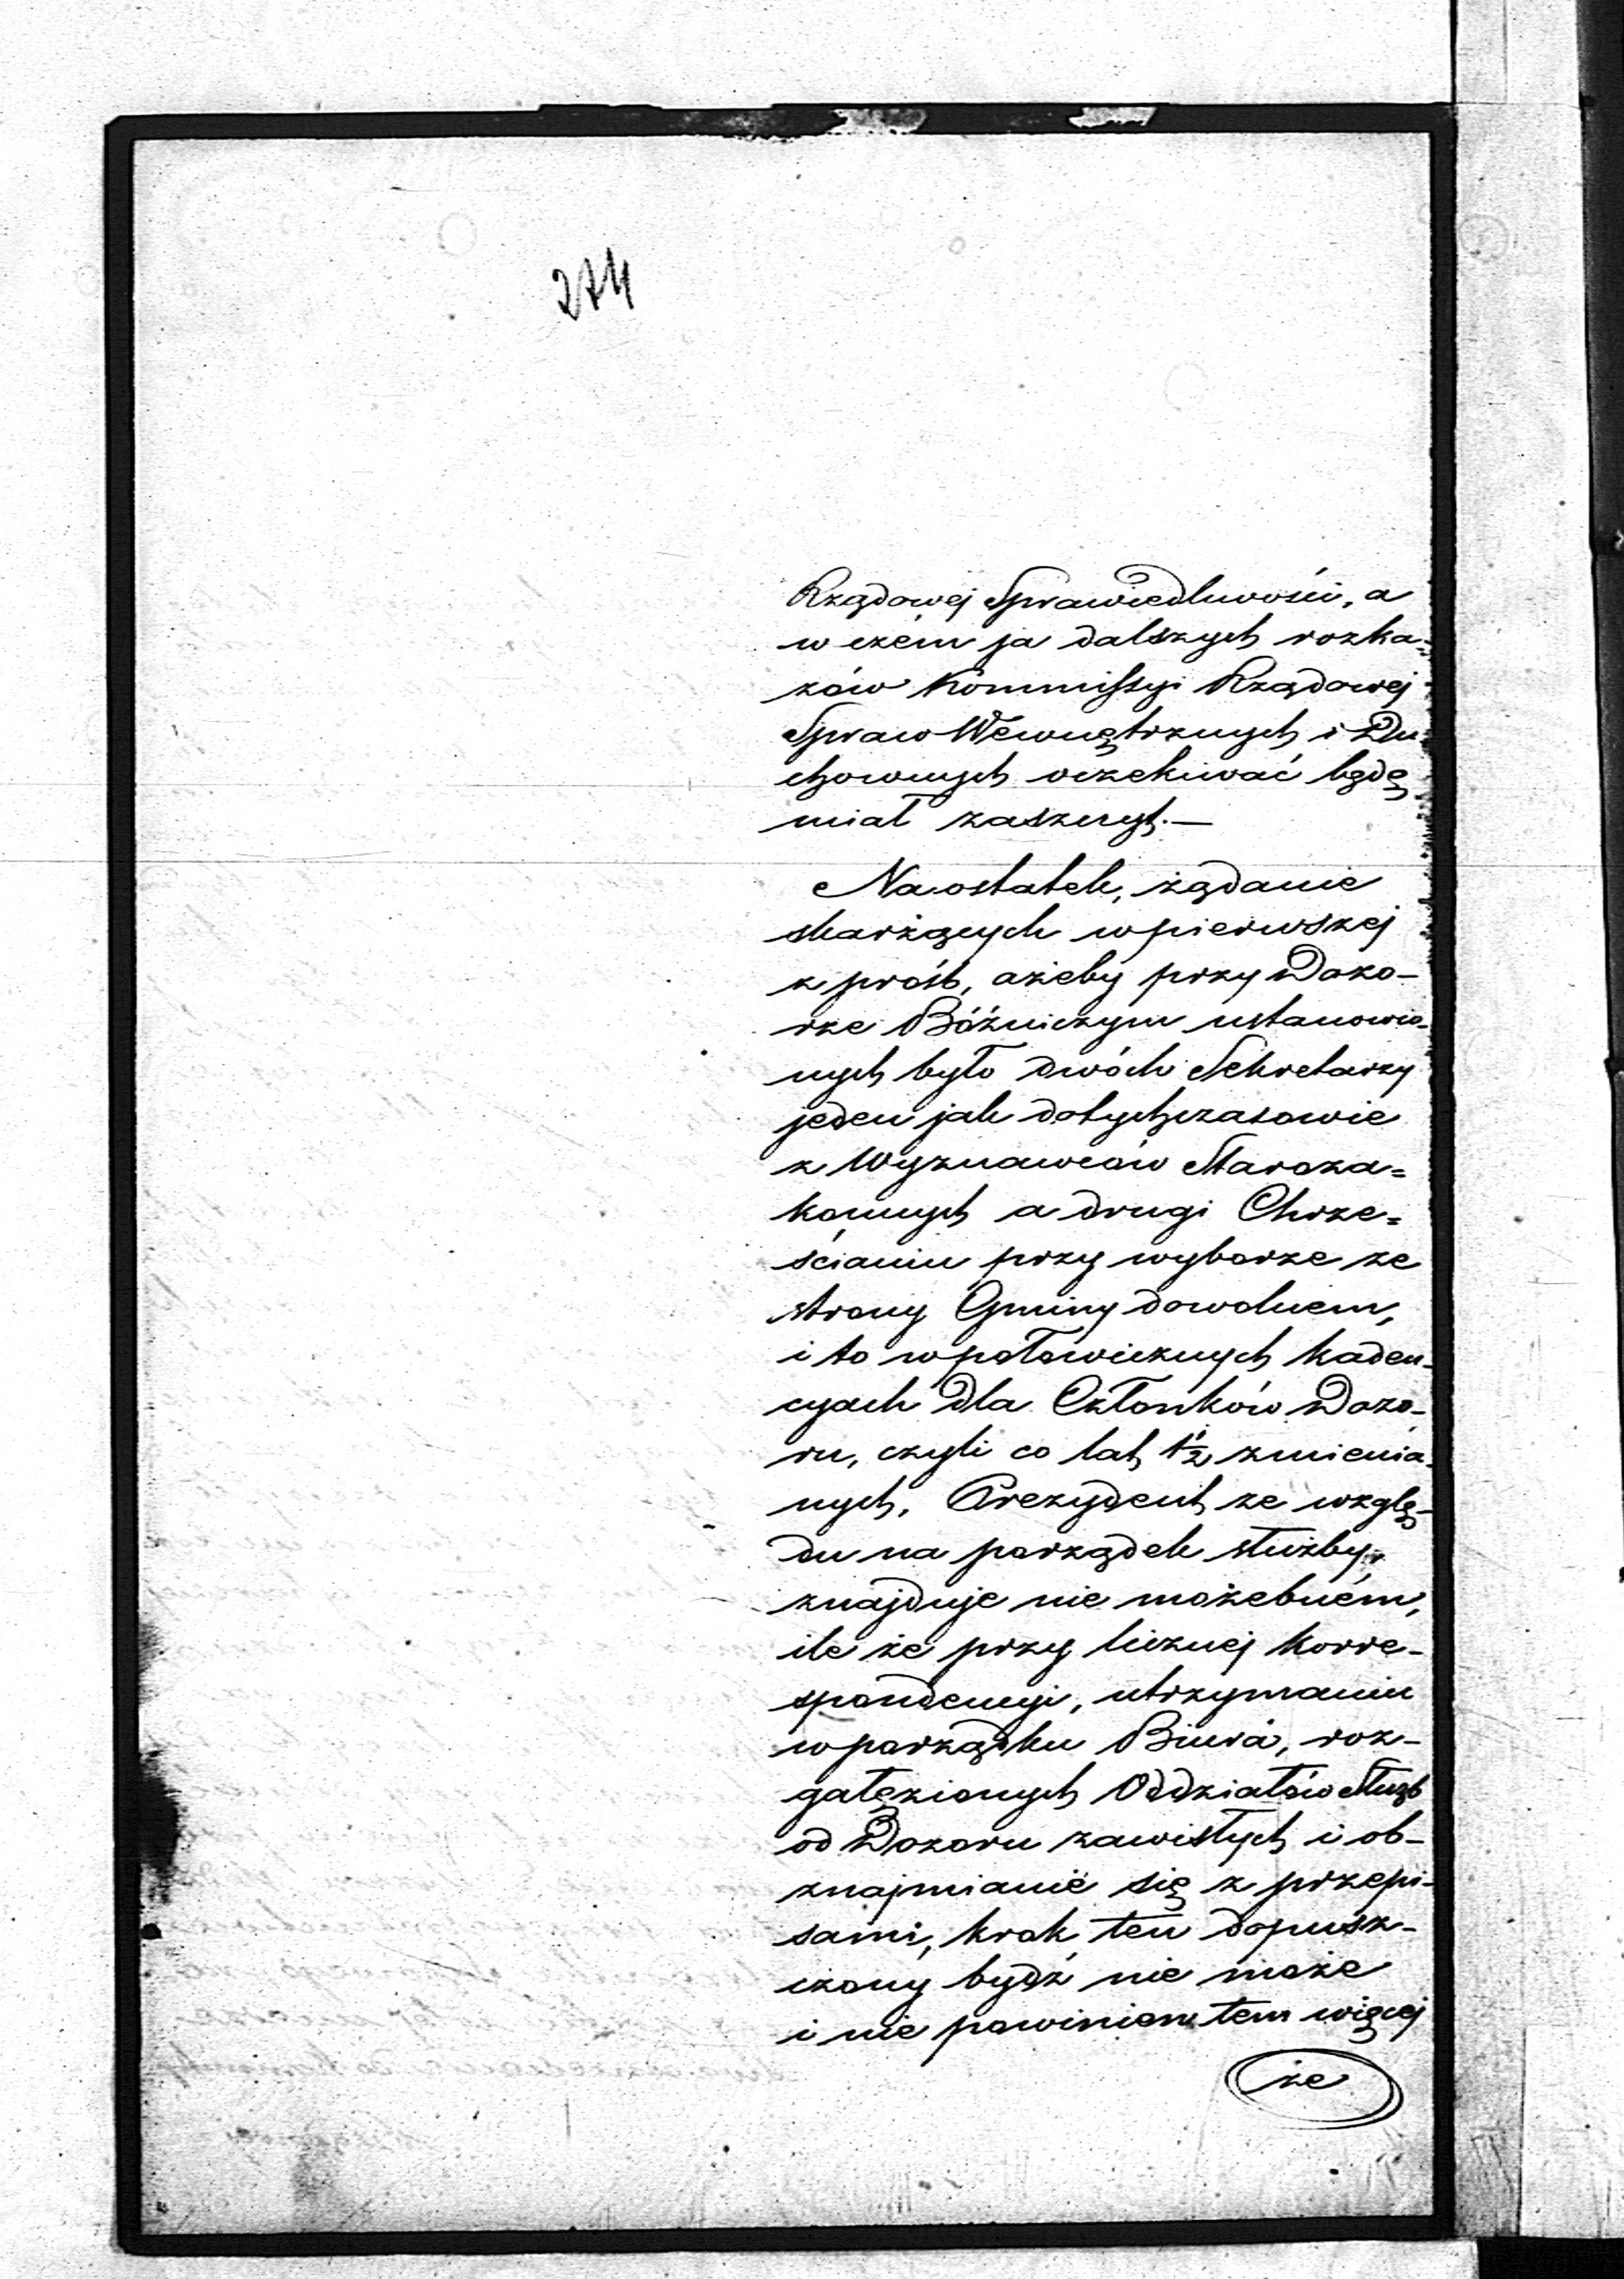 274
Rządowej Sprawiedliwości, a
w czém ja dalszych rozka=
zów Kommissyi Rządowej
Spraw Wewnętrznych i Du
chownych oczekiwać będę
miał zaszczyt.—
Naostatek, żądanie
skarżących w pierwszej
z próśb, ażeby przy Dozo-
rze Bóżniczym ustanowio-
nych było dwóch Sekretarzy
jeden jak dotychczasowie
z Wyznawców Staroza=
konnych a drugi Chrze=
ścianin przy wyborze ze
strony Gminy dowolnem,
i to w połowicznych kaden-
cyach dla Członków Dozo-
ru, czyli co lat 1½ zmienia-
nych, Prezydent ze wzglę-
du na porządek służby,
znajduje nie możebném,
ile że przy licznej korre-
spondencyi, utrzymaniu
w porządku Biura, roz-
gałęzionych Oddziałów Służb
od Dozoru zawisłych i ob-
znajmianie się z przepi-
sami, krok ten dopusz-
czony bydź nie może
i nie powinien tem więcej
że